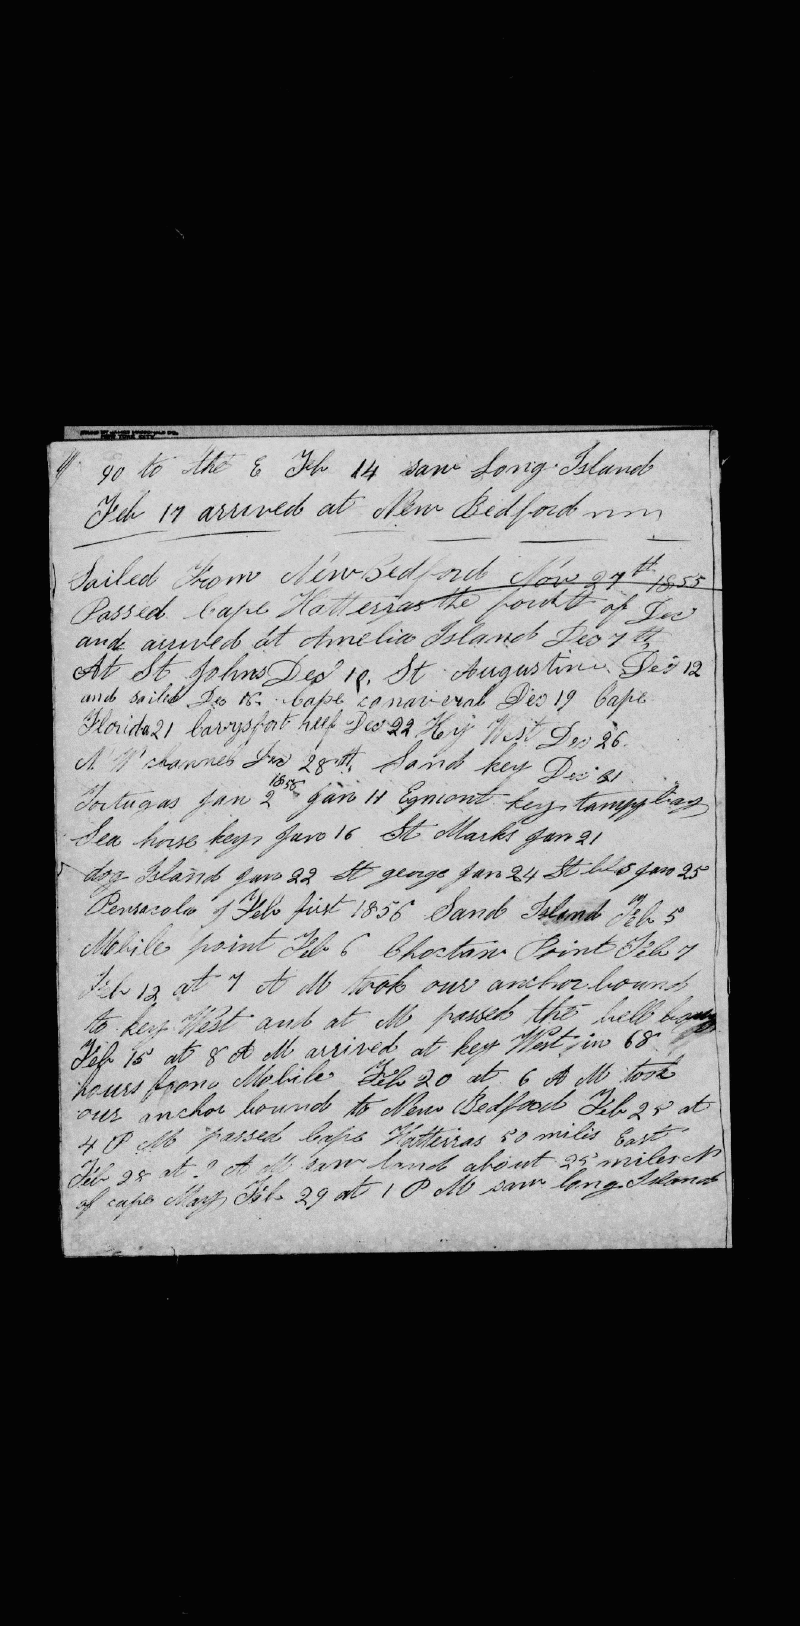 go to the E Feb 14 saw Long Island
Feb 17 arrived at New Bedford
Sailed From New Bedford Nov 27th 1855
Passed Cape Hatterras the fourth of Dec
and arrived at Amelia Island Dec 7th
At St Johns Dec 10, St Augustine Dec 12
and sailed Dec 18. Cape canaveral Dec 19 Cape
Florida 21 Carysfort reef Dec 22 Key West Dec 26
N W channel Dec 28th, Sand key Dec 31
1856
Tortugas Jan 2 Jan 11 Egmont key tampy bay
Sea horse key Jan 16 St Marks Jan 21
dog Island Jan 22 St george Jan 24 St blas Jan 25
Pensacola Feb first 1856 Sand Island Feb 5
Mobile point Feb 6 Choctaw Point Feb 7
Feb 12 at 7 A M took our anchor bound
to key West and at M passed the bell
Feb 15 at 8 A M arrived at key West in 68
hours from Mobile Feb 20 at 6 A M took
our anchor bound to New Bedford Feb 25 at
4 P M passed Cape Hatterras 50 miles East
Feb 28 at A M saw land about 25 miles N
of cape May Feb 29 at 1 P M saw long Island